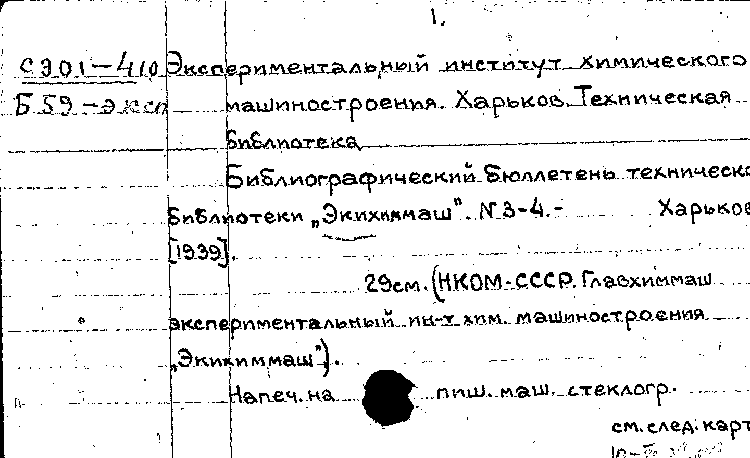 1.
С301-410 Экспериментальный институт химического
Б59-эксп машиностроения. Харьков. Техническая
библиотека
Библиографический бюллетень техническо
библиотеки „Экихиммаш". N3-4.- Харьков
[1939].
29см. (НКОМ-СССР. Главхиммаш
экспериментальный ин-т хим. машиностроения
„Экихиммаш").
Напеч. на пиш. маш. стеклогр.
см. след. карт